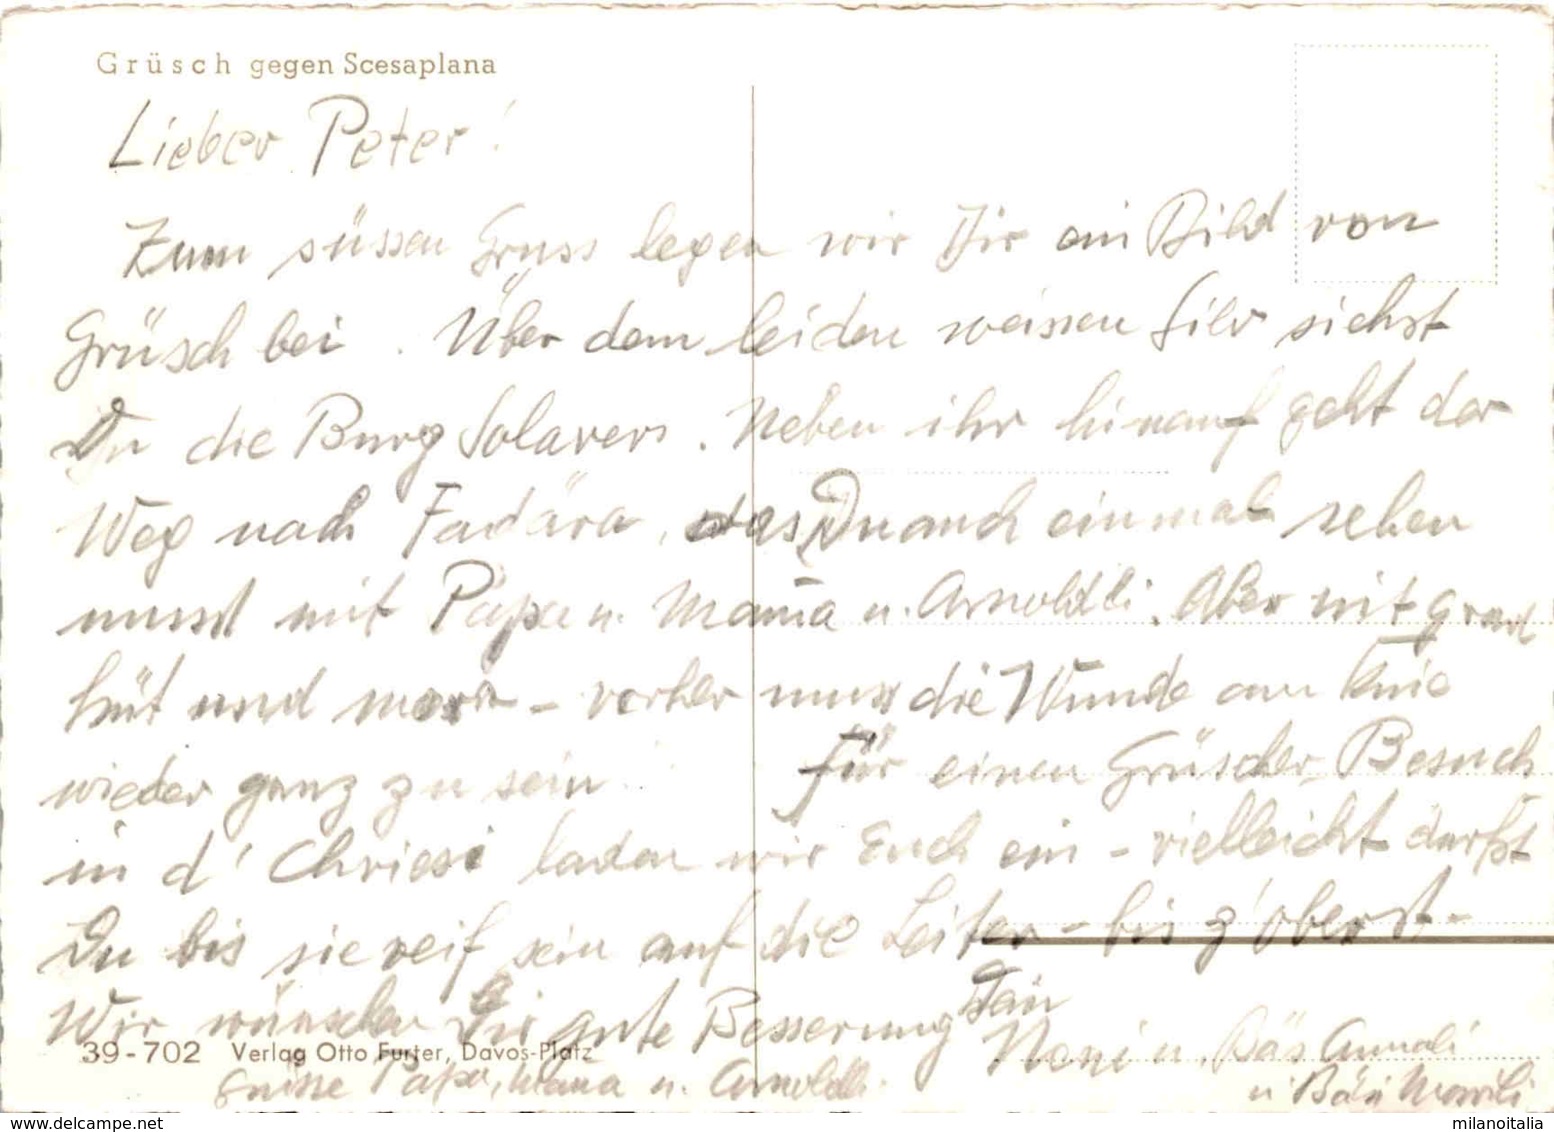 Grüsch gegen Scesaplana
Lieber Peter!
Zum süssen Gruss legen wir Dir ein Bild von
Grüsch bei. Über dem leiden weissen sichst
Du die Burg Solavers. Neben ihr hinauf geht der
Weg nach Fadära, das Du auch einmal sehen
musst mit Papa u. Mama u. Arnoldli. Aber nit grad
hüt und morn - vorher muss die Wunde am Knie
wieder ganz zu sein! Für einen Grüscher Besuch
in d' Chriesi laden wir Euch ein - vielleicht darfst
Du bis sie reif sein auf die Leiter - bis z'oberst -
Wir wünschen Dir gute Besserung Dein
Neni u. Bäs Annali
u Bäsi
39-702 Verlag Otto Furter, Davos-Platz
Grüsse Papa, Mama u. Arnoldli.
milanoitalia
www.delcampe.net